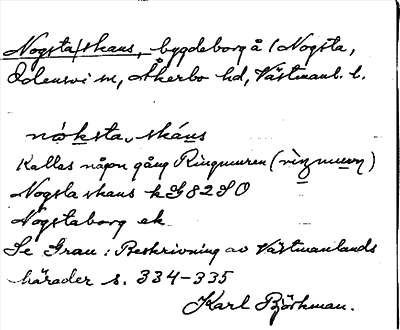 Nogsta/skans, bygdeborg å /Nogsta,
Odensvi sn, Åkerbo hd, Västmanl. l.
nóksta, skáns
Kallas någon gång Ringmuren (rìŋmuren)
Nogsta skans k G 82 SO
Nogstaborg ek.
Se Grau: Beskrivning av Västmanlands
härader s. 334-335
Karl Björkman.